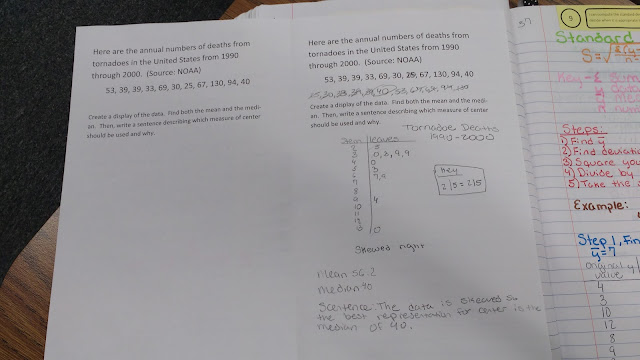 Here are the annual numbers of deaths from
tornadoes in the United States from 1990
through 2000. (Source: NOAA)
53, 39, 39, 33, 69, 30, 25, 67, 130, 94, 40
Create a display of the data. Find both the mean and the medi-
an. Then, write a sentence describing which measure of center
should be used and why.
Here are the annual numbers of deaths from
tornadoes in the United States from 1990
through 2000. (Source: NOAA)
53, 39, 39, 33, 69, 30, 25, 67, 130, 94, 40
Create a display of the data. Find both the mean and the medi-
an. Then, write a sentence describing which measure of center
should be used and why.
Tornadoe Deaths
1990-2000
Stem leaves
2 5
3 0,3,9,9
4 0
5 3
6 7,9
7
8
9 4
10
11
Key
2|5=25
Skewed right
Mean 56.2
median 40
Scentence: The data is skewed so
the best representation for center is the
median of 40.
57
9
Standard
S=
Key-
Steps:
1) Find y
2) Find deviatio
3) Square you
4) Divide by
5) Take the
Example:
Step 1, Fin
y=7
original
value
4
3
10
12
8
9